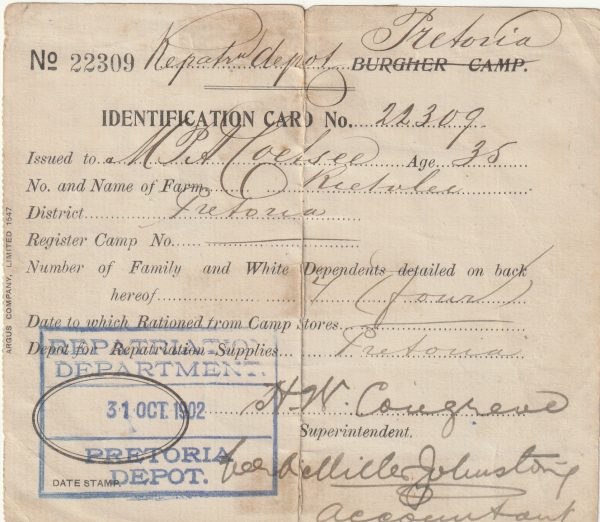 Pretoria
No 22309 Repatrn depot BURGHER CAMP.
IDENTIFICATION CARD No. 22309
Issued to M P A Coetsee Age 35
No. and Name of Farm Rietvlei
District Pretoria
Register Camp No.
Number of Family and White Dependents detailed on back
hereof 4 four
Date to which Rationed from Camp Stores
Depot for Repatriation Supplies Pretoria
REPATRIATION
DEPARTMENT.
31 OCT. 1902
PRETORIA
DEPOT.
DATE STAMP
H. W. Congreve
Superintendent.
Miller Johnstone
Accountant
ARGUS COMPANY, LIMITED 1547